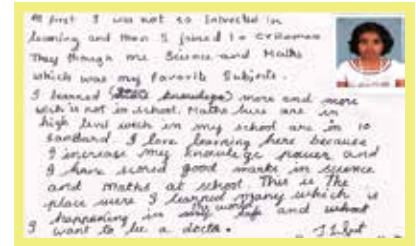 At first I was not so Intrested in
learning and then I joined in
They though me Science and Maths
which was my favorit Subjects.
I learned more and more
wich is not in school. Maths here are in
high level wich in my school are in 10
sandard. I love learning here because
I increase my knowledge power and
I have scored good marks in science
and maths at school. This is the
place were I learned many which is
happening in the world life and
I want to be a docter.